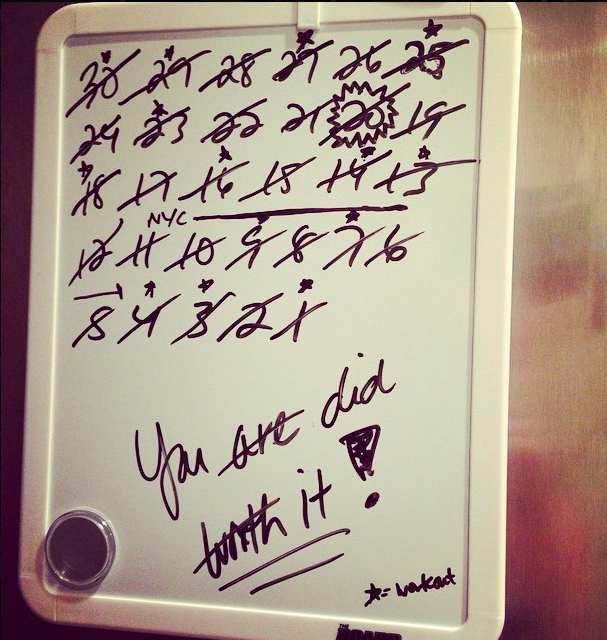 30 29 28 27 26 25
24 23 22 21 20 19
18 17 16 15 14 13
NYC
12 11 10 9 8 7 6
5 4 3 2 1
You are did
worth it!
★= workout
THE BOARD